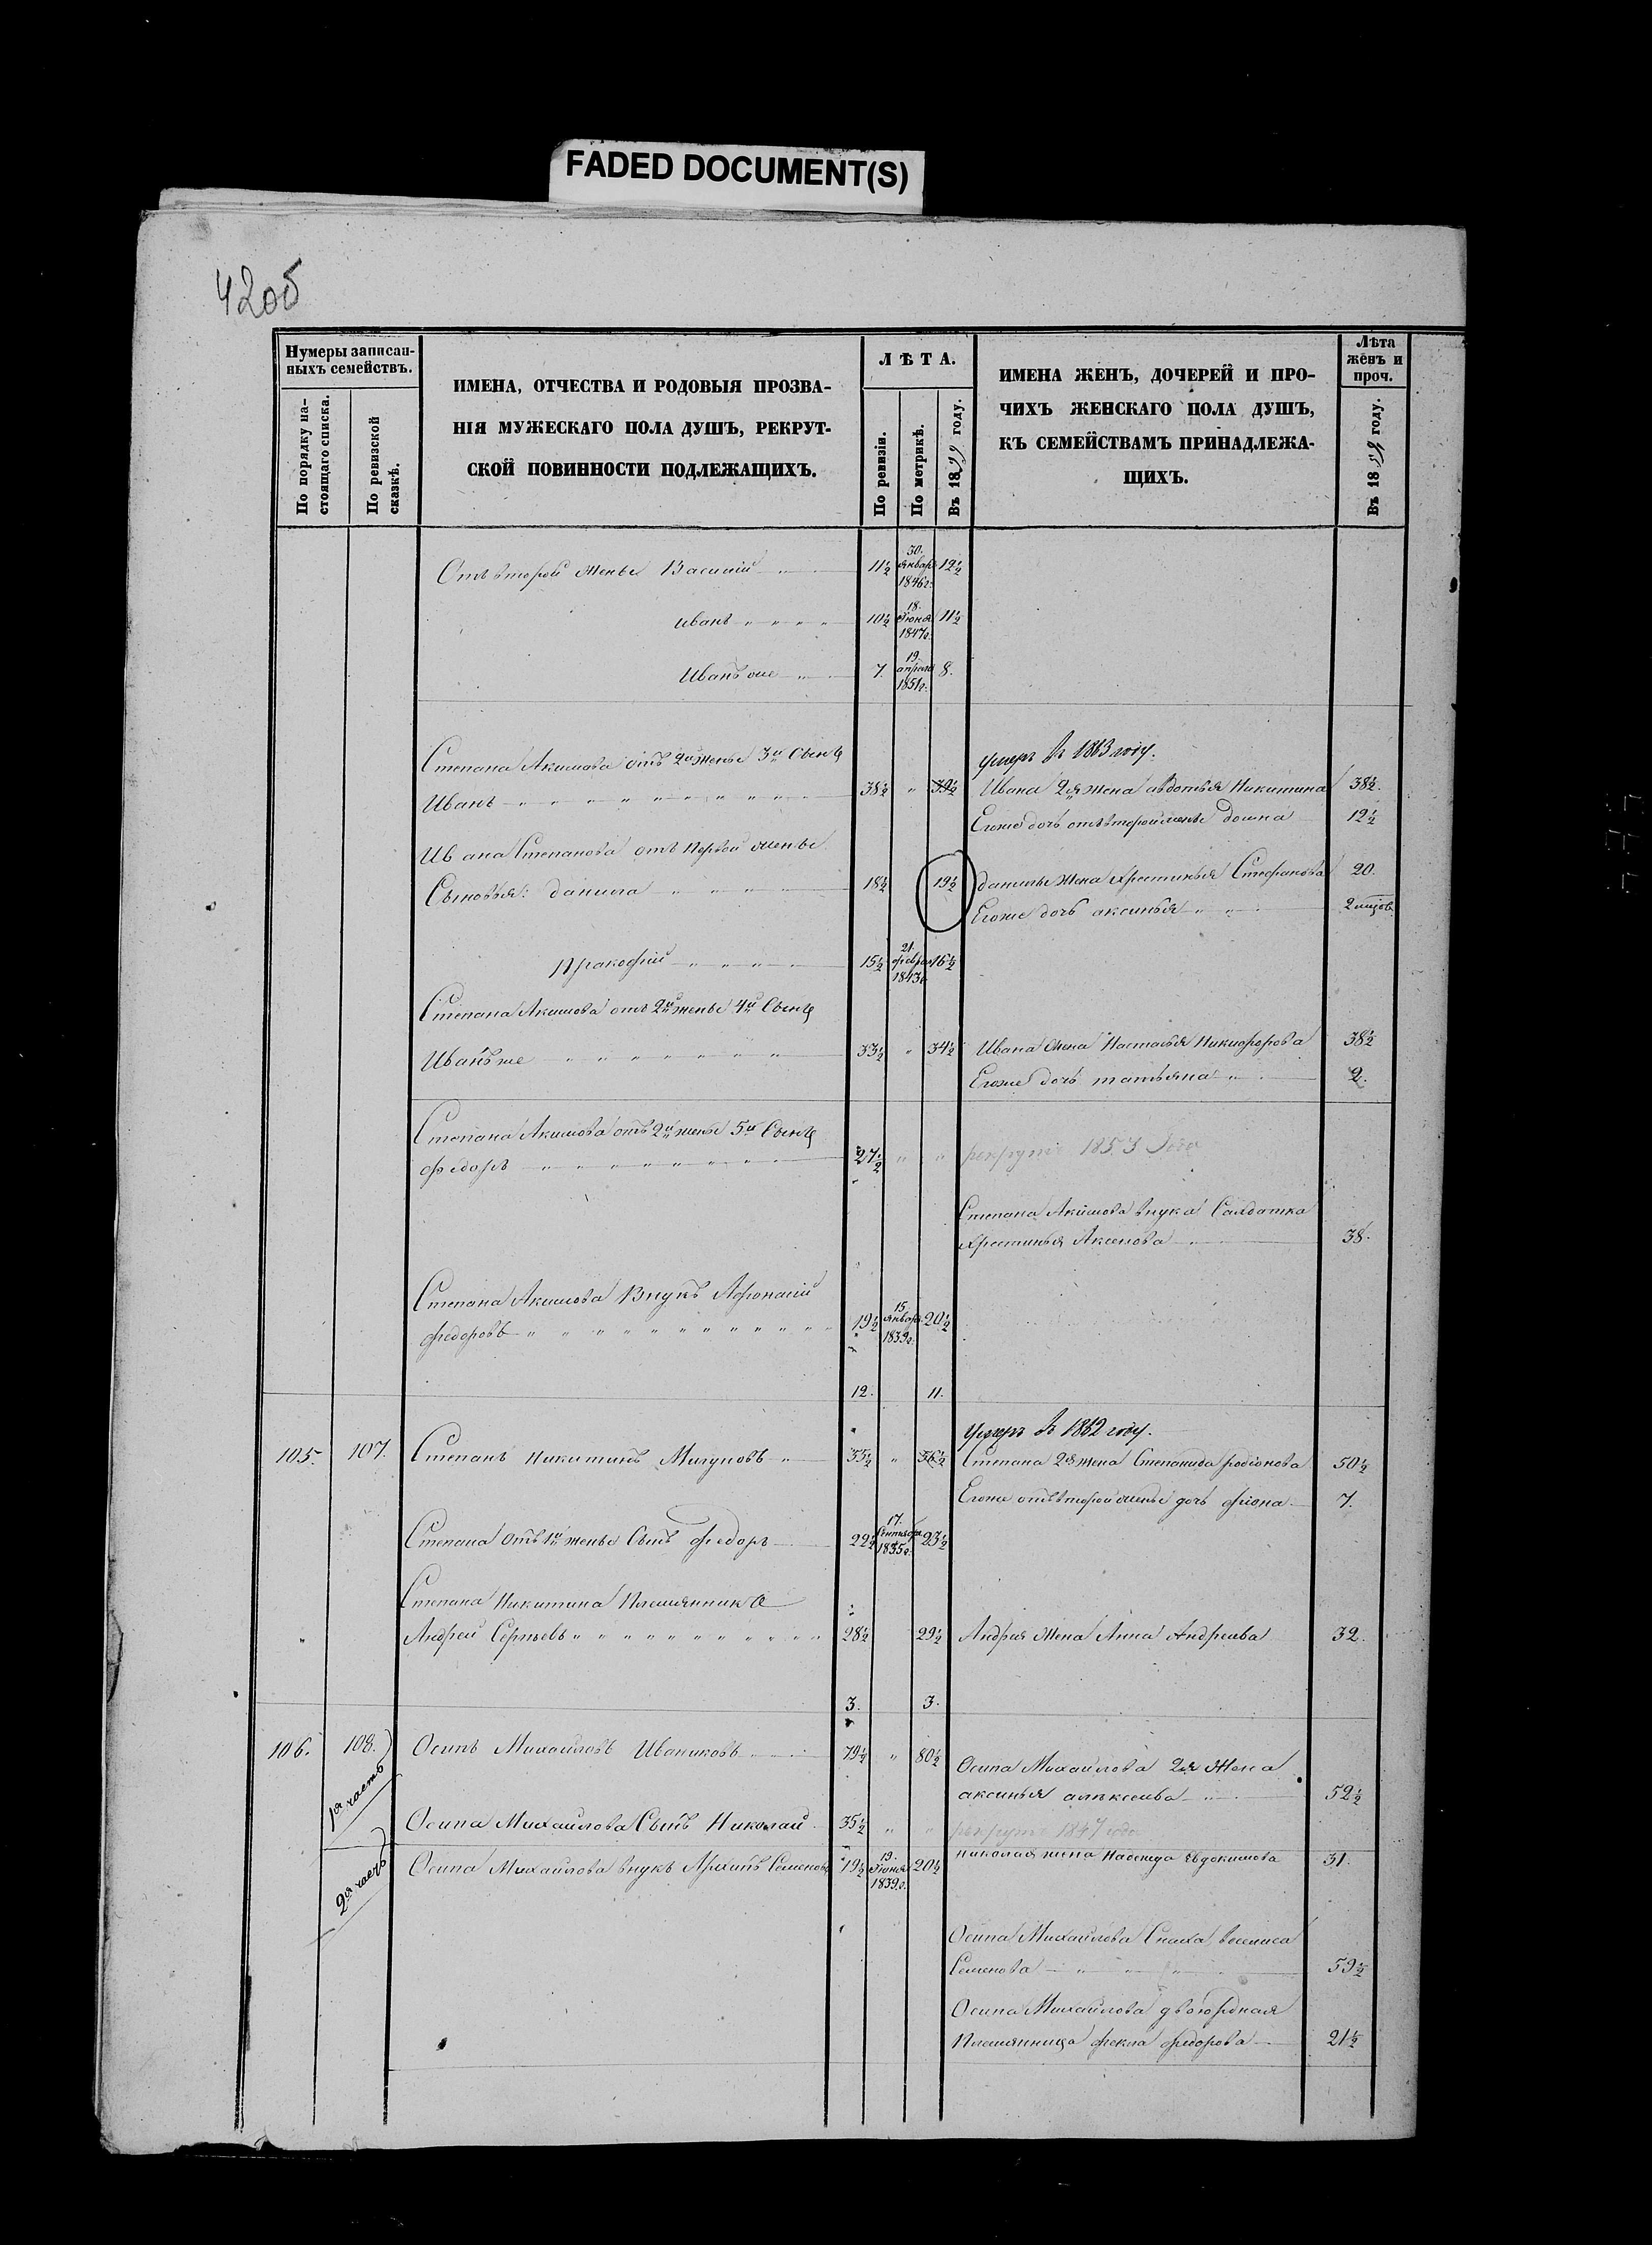 FADED DOCUMENT(S)
42об
Нумеры записан-
ныхъ семействъ.
По порядку на-
стоящаго списка.
По ревизской
сказкѣ.
ИМЕНА, ОТЧЕСТВА И РОДОВЫЯ ПРОЗВА-
НІЯ МУЖЕСКАГО ПОЛА ДУШЪ, РЕКРУТ-
СКОЙ ПОВИННОСТИ ПОДЛЕЖАЩИХЪ.
ЛѢТА.
По ревизіи.
По метрикѣ.
Въ 1859 году.
ИМЕНА ЖЕНЪ, ДОЧЕРЕЙ И ПРО-
ЧИХЪ ЖЕНСКАГО ПОЛА ДУШЪ,
КЪ СЕМЕЙСТВАМЪ ПРИНАДЛЕЖА-
ЩИХЪ.
Лѣта
женъ и
проч.
Въ 1859 году.
Отъ второй жены Василій 11½ 30. Январ. 1846г. 12½
иванъ 10½ 18. Іюня 1847г. 11½
Иванъ же 7. 19. апреля 1851г. 8.
Степана Акимова отъ 2й жены 3й Сынъ
умеръ въ 1863 году.
Иванъ 38½ " 39½ Ивана 2я жена авдотья Никитина 38½.
Егоже дочь отъ второй жены домна 12½
Ивана Степанова отъ первой жены
Сыновья: данила 18½ 19½ данилы жена хрестинья Стефанова 20.
Егоже дочь аксинья 2 мцов.
Пракофій 15½ 21. февра. 1843г. 16½
Степана Акимова отъ 2й жены 4й Сынъ
Иванъ же 33½ " 34½ Ивана жена Настасья Никифорова 38½
Егоже дочь татьяна 2.
Степана Акимова отъ 2й жены 5й Сынъ
федоръ 27½ " " рекрутъ 1853 года
Степана Акимова внука Салдатка
хрестинья Аксенова 38.
Степана Акимова Внукъ Афонасій
федоровъ 19½ 15 Января 1839г. 20½
12. 11.
умеръ въ 1862 году.
105. 107. Степанъ Никитинъ Мигуновъ 35½ " 36½ Степана 2я жена Степанида родіонова 50½
Егоже отъ второй жены дочь фіона 7.
Степана отъ 1й жены Сынъ федоръ 22½ 17. Сентября 1835г. 23½
Степана Никитина Племянникъ
Андрей Сергѣевъ 28½ 29½ Андрея жена Анна Андреева 32.
3. 3.
106. 108. Осипъ Михайловъ Иваниковъ 79½ " 80½
1я часть
Осипа Михайлова 2я жена
аксинья алексеева 52½
Осипа Михайлова Сынъ Николай 35½ " " рекрутъ 1847 года
николая жена Надежда Евдокимова 31.
2я часть
Осипа Михайлова внукъ Архипъ Семеновъ 19½ 19. Іюня 1839г. 20½
Осипа Михайлова Сноха василиса
Семенова 59½
Осипа Михайлова двоюрдная
Племянница фекла федорова 21½